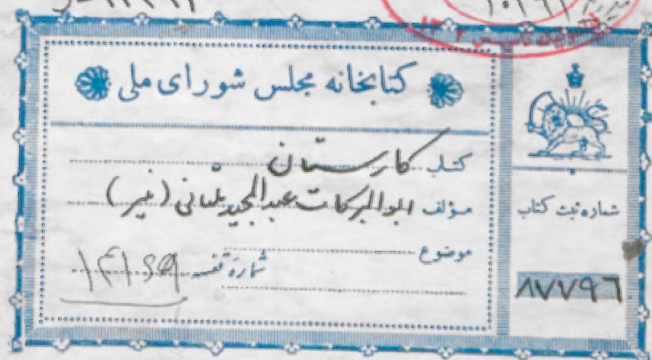 کتابخانه مجلس شورای ملی
کتاب کارستان
مؤلف ابوالبرکات عبدالمجید ملتانی (نیر)
موضوع
شماره قفسه ۱۴۱۶۹
شماره ثبت کتاب
۸۷۷۹۶